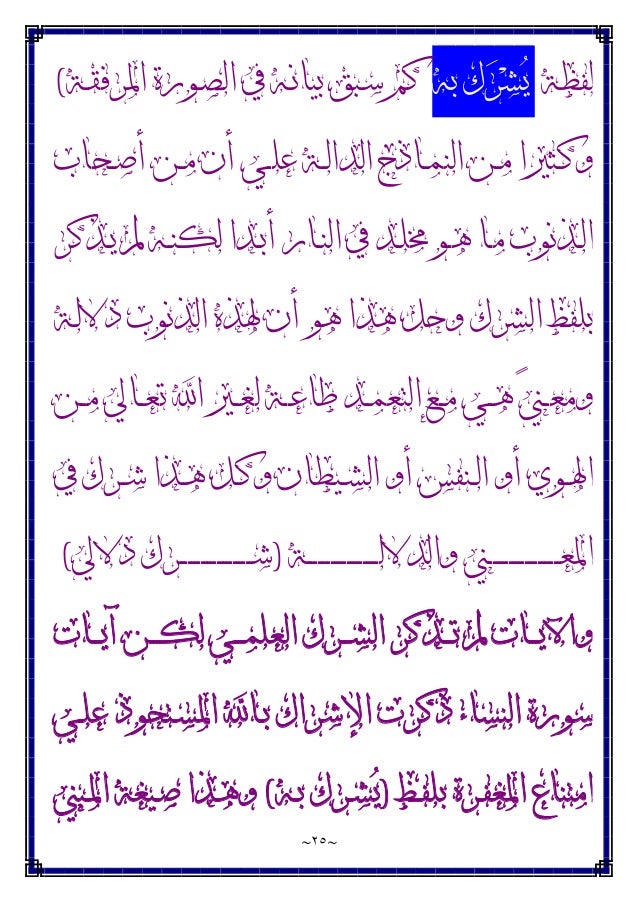 لفظة يُشْرَك به كم سبق بيانه في الصورة المرفقة)
وكثيرا من النماذج الدالة علي أن من أصحاب
الذنوب ما هو مخلد في النار أبدا لكنه لم يذكر
بلفظ الشرك وحل هذا هو أن لهذه الذنوب دلالة
ومعنيً هي مع التعمد طاعة لغير الله تعالي من
الهوي أو النفس أو الشيطان وكل هذا شرك في
المعني والدلالة (شرك دلالي)
والآيات لم تذكر الشرك العلمي لكن آيات
سورة النساء ذكرت الإشراك بالله المستحوذ علي
امتناع المغفرة بلفظ (يُشرك به) وهذا صيغة المبني
~٢٥~